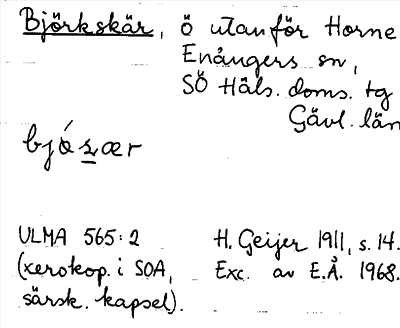 Björkskär, ö utanför Horne
Enångers sn,
SÖ Häls. doms. tg
Gävl. län
bjó̱ʂær
ULMA 565:2
(xerokop. i SOA,
särsk. kapsel).
H. Geijer 1911, s. 14.
Exc. av E.Å. 1968.